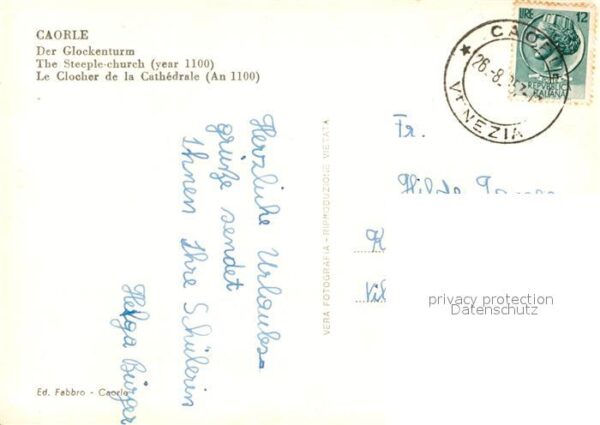 CAORLE
Der Glockenturm
The Steeple-church (year 1100)
Le Clocher de la Cathédrale (An 1100)
LIRE 12
REPVBBLICA
ITALIANA
CAORLE
26.-8.
VENEZIA
Herzliche Urlaubs-
grüße sendet
Ihnen Ihre Schülerin
Helga Bürger
VERA FOTOGRAFIA - RIPRODUZIONE VIETATA
Fr.
Hilde
K
Vil
privacy protection
Datenschutz
Ed. Fabbro - Caorle